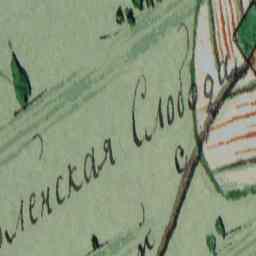 оленская Слобода
с